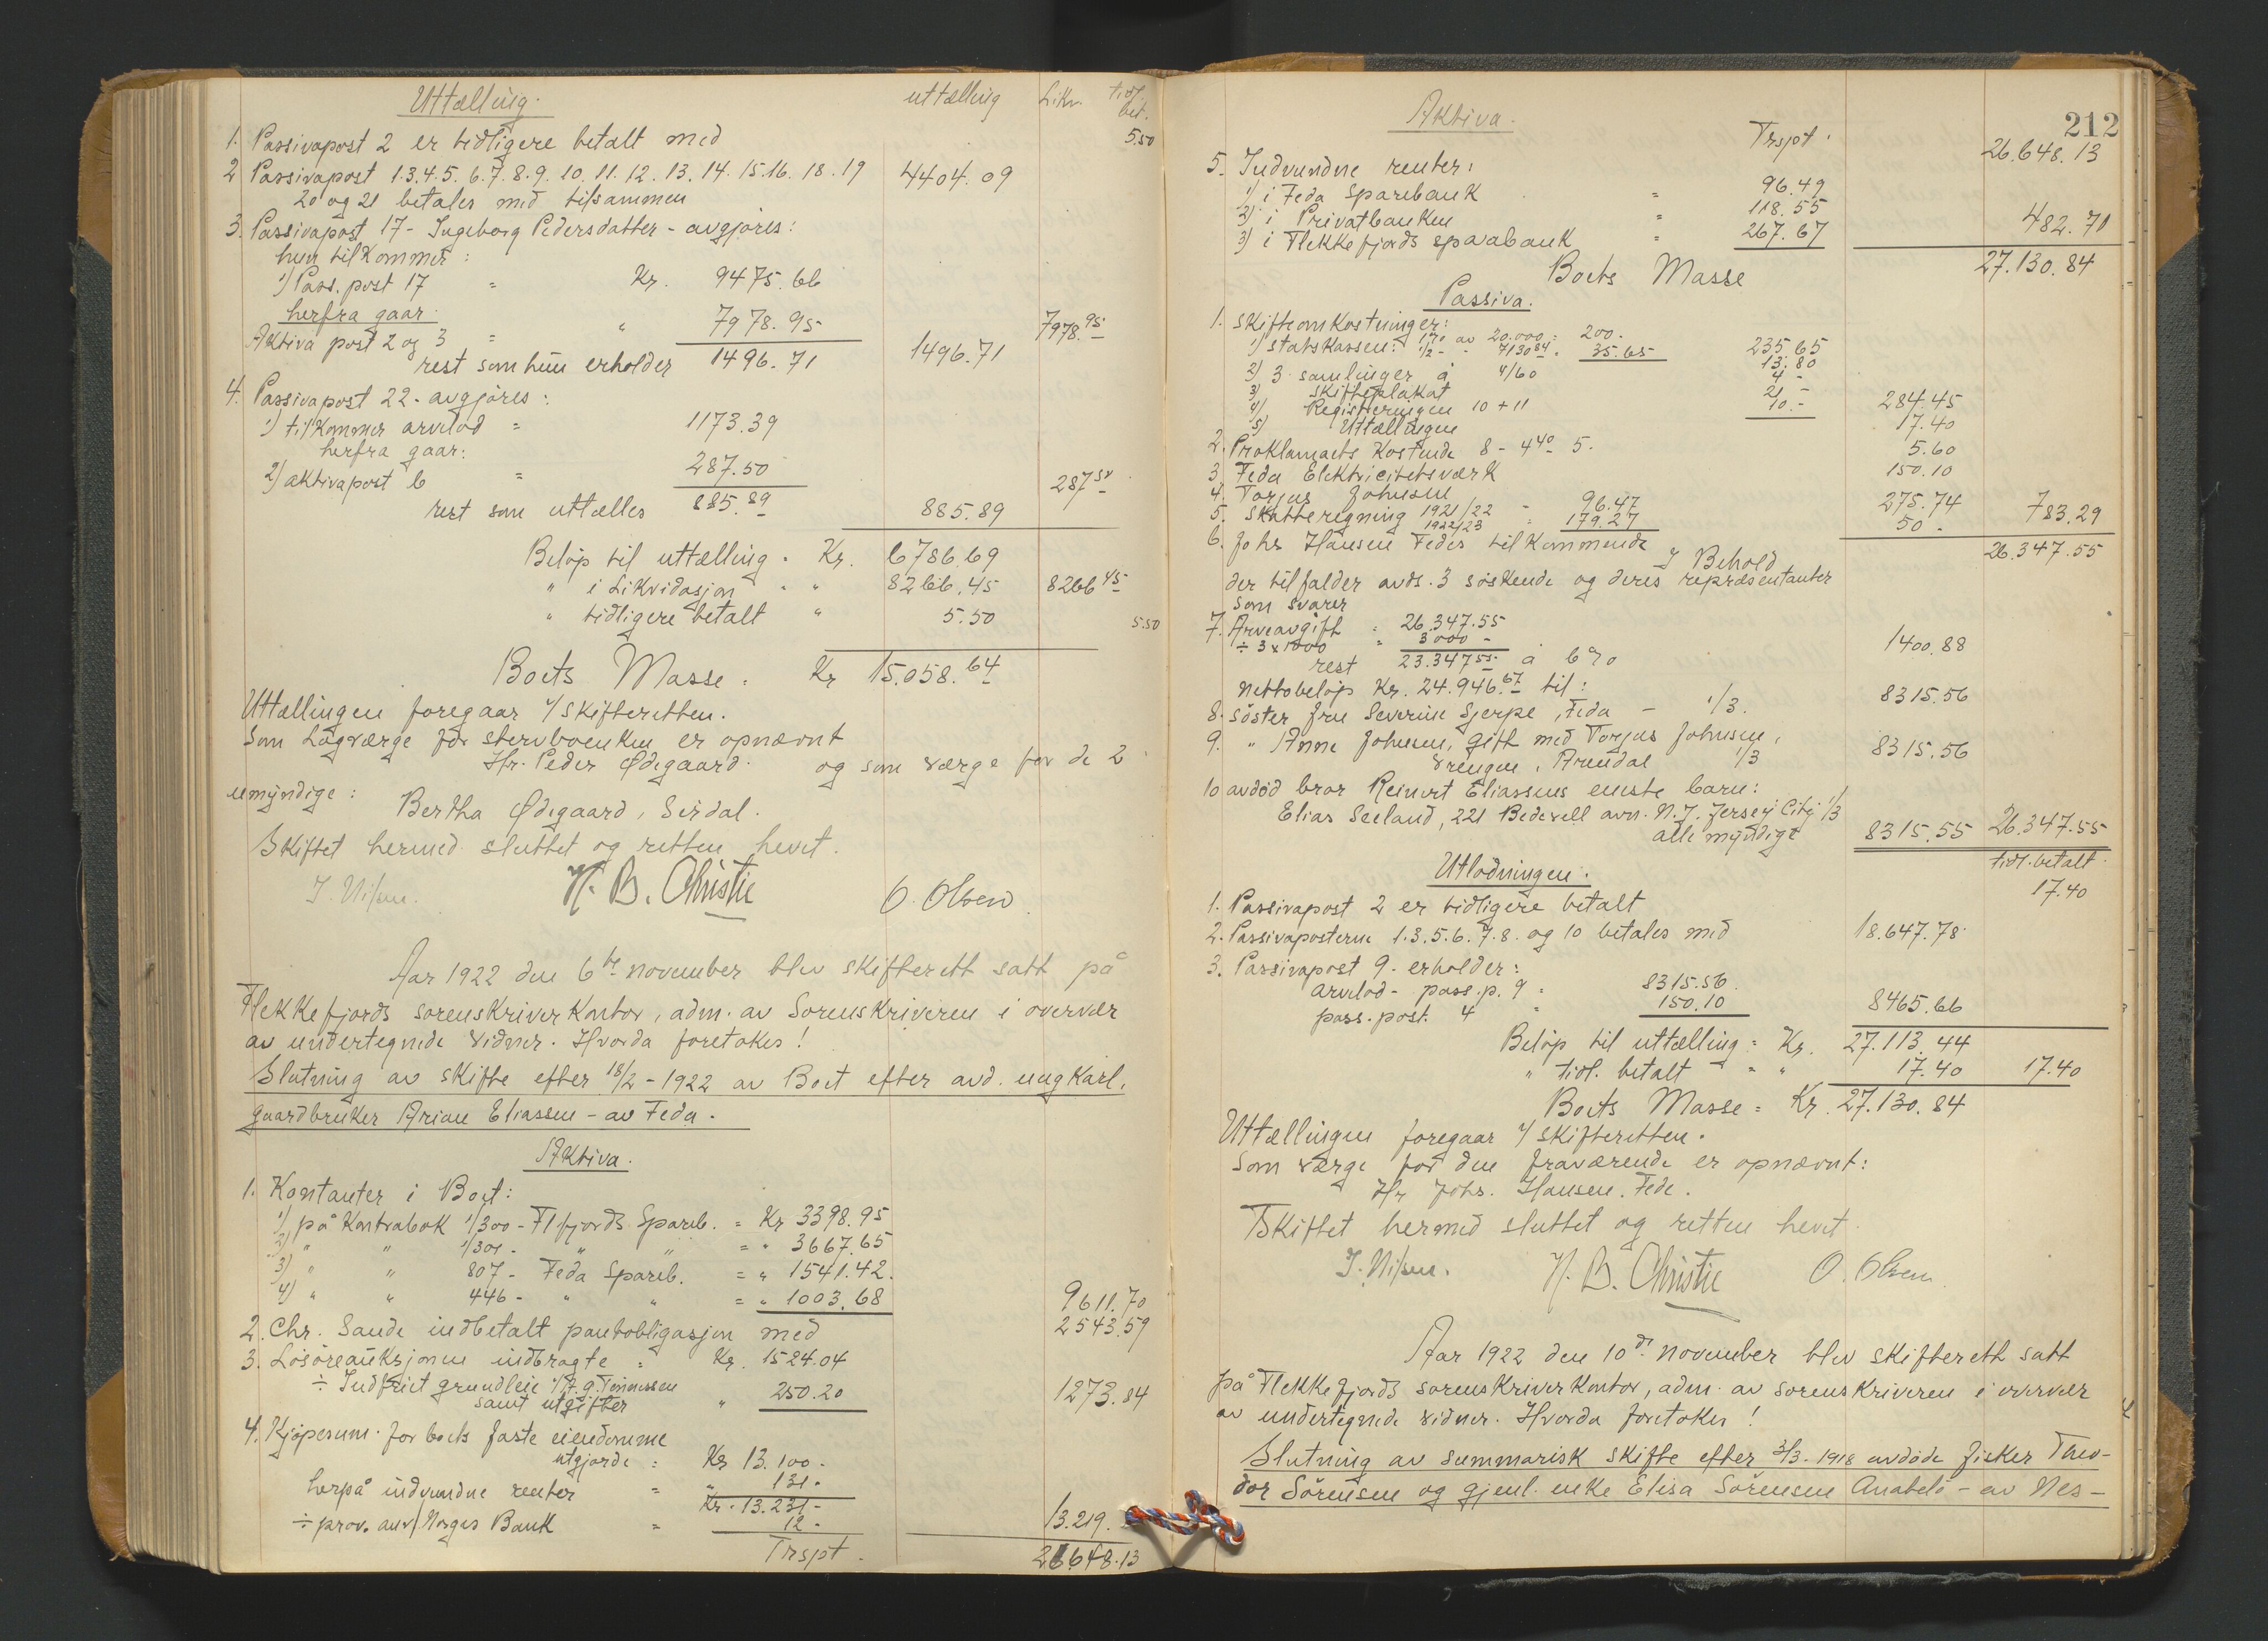 Uttælling.
uttælling Likv. tidl. bet.
1. Passivapost 2 er tidligere betalt med 5.50
2 Passivapost 1.3.4.5.6.7.8.9.10.11.12.13.14.15.16.18.19 4404.09
20 og 21 betales med tilsammen
3. Passivapost 17 - Ingeborg Pedersdatter - avgjøres:
hun tilkommer:
1) Pass. post 17 = Kr. 9475.66
herfra gaar:
Aktiva post 2 og 3 = " 7978.95 7978.95
rest som hun erholder 1496.71 1496.71
4. Passivapost 22 - avgjøres:
1) tilkommer arvelod = 1173.39
herfra gaar:
2) aktivapost 6 = 287.50 287.50
rest som uttælles 885.89 885.89
Beløp til uttælling = Kr. 6786.69
" i Likvidasjon = " 8266.45 8266.45
" tidligere betalt " 5.50 5.50
Boets Masse = Kr 15.058.64
Uttællingen foregaar v/ skifteretten.
Som Lagværge for stervboenken er opnævnt
Hr. Peder Ødegaard. og som værge for de 2
umyndige:
Bertha Ødegaard, Sirdal.
Skiftet hermed sluttet og retten hevet.
J. Nilsen. H. B. Christie O. Olsen
Aar 1922 den 6te november blev skifterett satt på
Flekkefjords sorenskriverkontor, adm. av Sorenskriveren i overvær
av undertegnede vidner. Hvorda foretokes!
Slutning av skifte efter 18/2 - 1922 av Boet efter avd. ungkarl,
gaardbruker Arian Eliassen - av Feda.
Aktiva.
1. Kontanter i Boet:
1) på Kontrabok 1/300 - Flfjords Spareb. = Kr 3398.95
2) " " 1/301 - " " = " 3667.65
3) " " 807 - Feda Spareb. = " 1541.42
4) " " 446 - " " = " 1003.68 9611.70
2. Chr. Sande indbetalt pantobligasjon med 2543.59
3. Løsøreauksjonen indbragte = Kr. 1524.04
÷ Indfriet grundleie
samt utgifter " 250.20 1273.84
4. Kjøpesum for boets faste eiendomme
utgjorde = Kr 13.100 -
herpå indvundne renter = " 131 -
Kr. 13.231 -
÷ prov. Norges Bank = 12 - 13.219.
Trspt. 26648.13
212
Aktiva.
Trspt. 26.648.13
5. Indvundne renter:
1) i Feda Sparebank = 96.49
2) i Privatbanken = 118.55
3) i Flekkefjords sparabank = 267.67 482.71
Boets Masse 27.130.84
Passiva.
1. Skifteomkostninger:
1) Statskassen: 1% av 20.000 = 200.
1/2 - - 7130.84 = 35.65 235.65
2) 3 samlinger á 4/60 13.80
3) Skifteplakat 4 -
4) Registreringen 10 + 11 21 -
5) Uttællingen 10. - 284.45
2. Proklamaets Kostende 8 - 4.40 5. 17.40
3 Feda Elektricitetsværk 5.60
4. Torjus Johnsen 150.10
5. Skatteregning 1921/22 - 96.47
1922/23 " 179.27 275.74
6. Johs Hansen Fedes tilkommende 50 - 783.29
I Behold 26.347.55
der tilfalder avds. 3 søskende og deres repræsentanter
som svarer
7. Arveavgift = 26.347.55
÷ 3 x 1000 " 3000 -
rest 23.347.55 á 6% 1400.88
Nettobeløp Kr. 24.946.67 til:
8. søster fru Severine Gjerpe, Feda - 1/3. 8315.56
9. " Anne Johnsen, gift med Torjus Johnsen,
Vrengen, Arendal 1/3 8315.56
10 avdød bror Reinert Eliassens eneste barn:
Elias Seeland, 221 Bedevell avn. N.J. Jersey City 1/3
alle myndige 8315.55 26.347.55
Utlodningen.
tidl. betalt
1. Passivapost 2 er tidligere betalt 17.40
2. Passivaposterne 1.3.5.6.7.8. og 10 betales med 18.647.78
3. Passivapost 9 - erholder:
arvelod - pass. p. 9 = 8315.56
pass. post. 4 " 150.10 8465.66
Beløp til uttælling = Kr. 27.113.44
" tidl. betalt = " 17.40 17.40
Boets Masse = Kr. 27.130.84
Uttællingen foregaar v/ skifteretten.
Som værge for den fraværende er opnævnt:
Hr Johs. Hansen. Fede.
Skiftet hermed sluttet og retten hevet.
J. Nilsen. H. B. Christie O. Olsen
Aar 1922 den 10de november blev skifterett satt
på Flekkefjords sorenskriverkontor, adm. av sorenskriveren i overvær
av undertegnede vidner. Hvorda foretokes!
Slutning av summarisk skifte efter 3/3. 1918 avdøde fisker Theo-
dor Sørensen og gjenl. enke Elisa Sørensen Anabelø - av Nes -